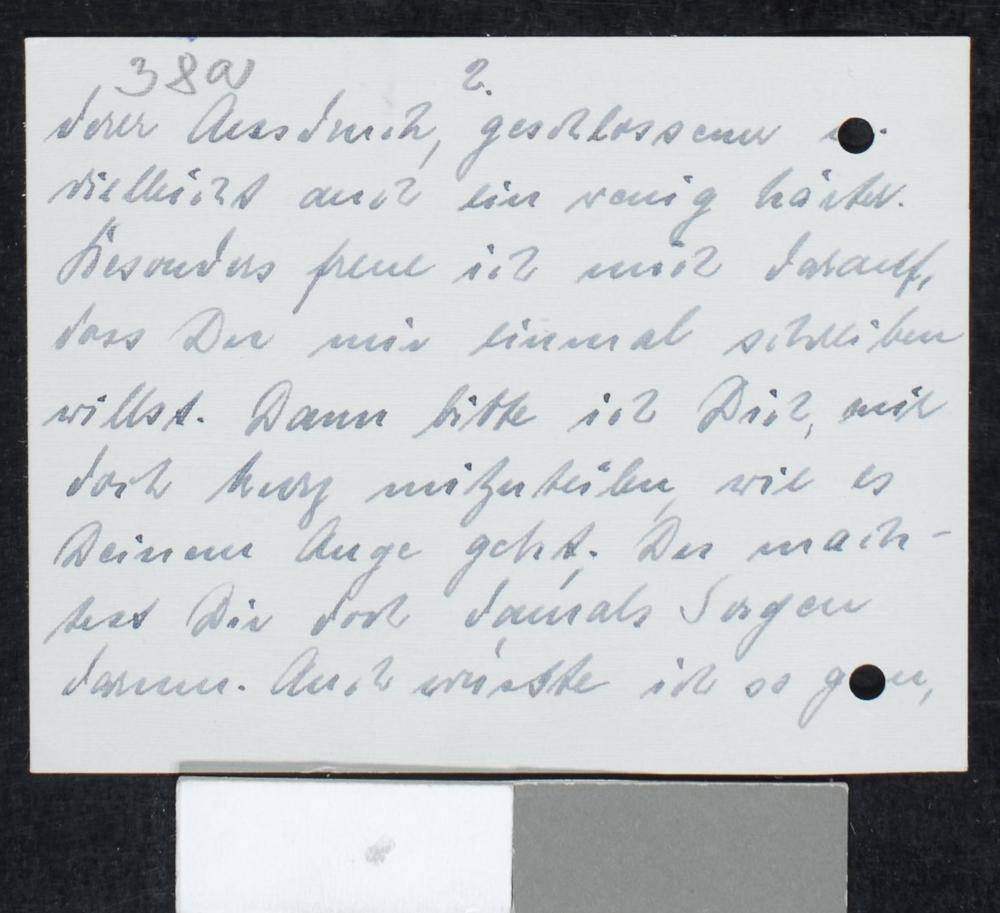 38a 2.
derer Ausdruck, geschlossener
vielleicht auch ein wenig härter.
Besonders freue ich mich darauf,
dass Du mir einmal schreiben
willst. Dann bitte ich Dich, mir
doch kurz mitzuteilen, wie es
Deinem Auge geht. Du mach-
test Dir doch damals Sorgen
darum. Auch wüsste ich so gern,